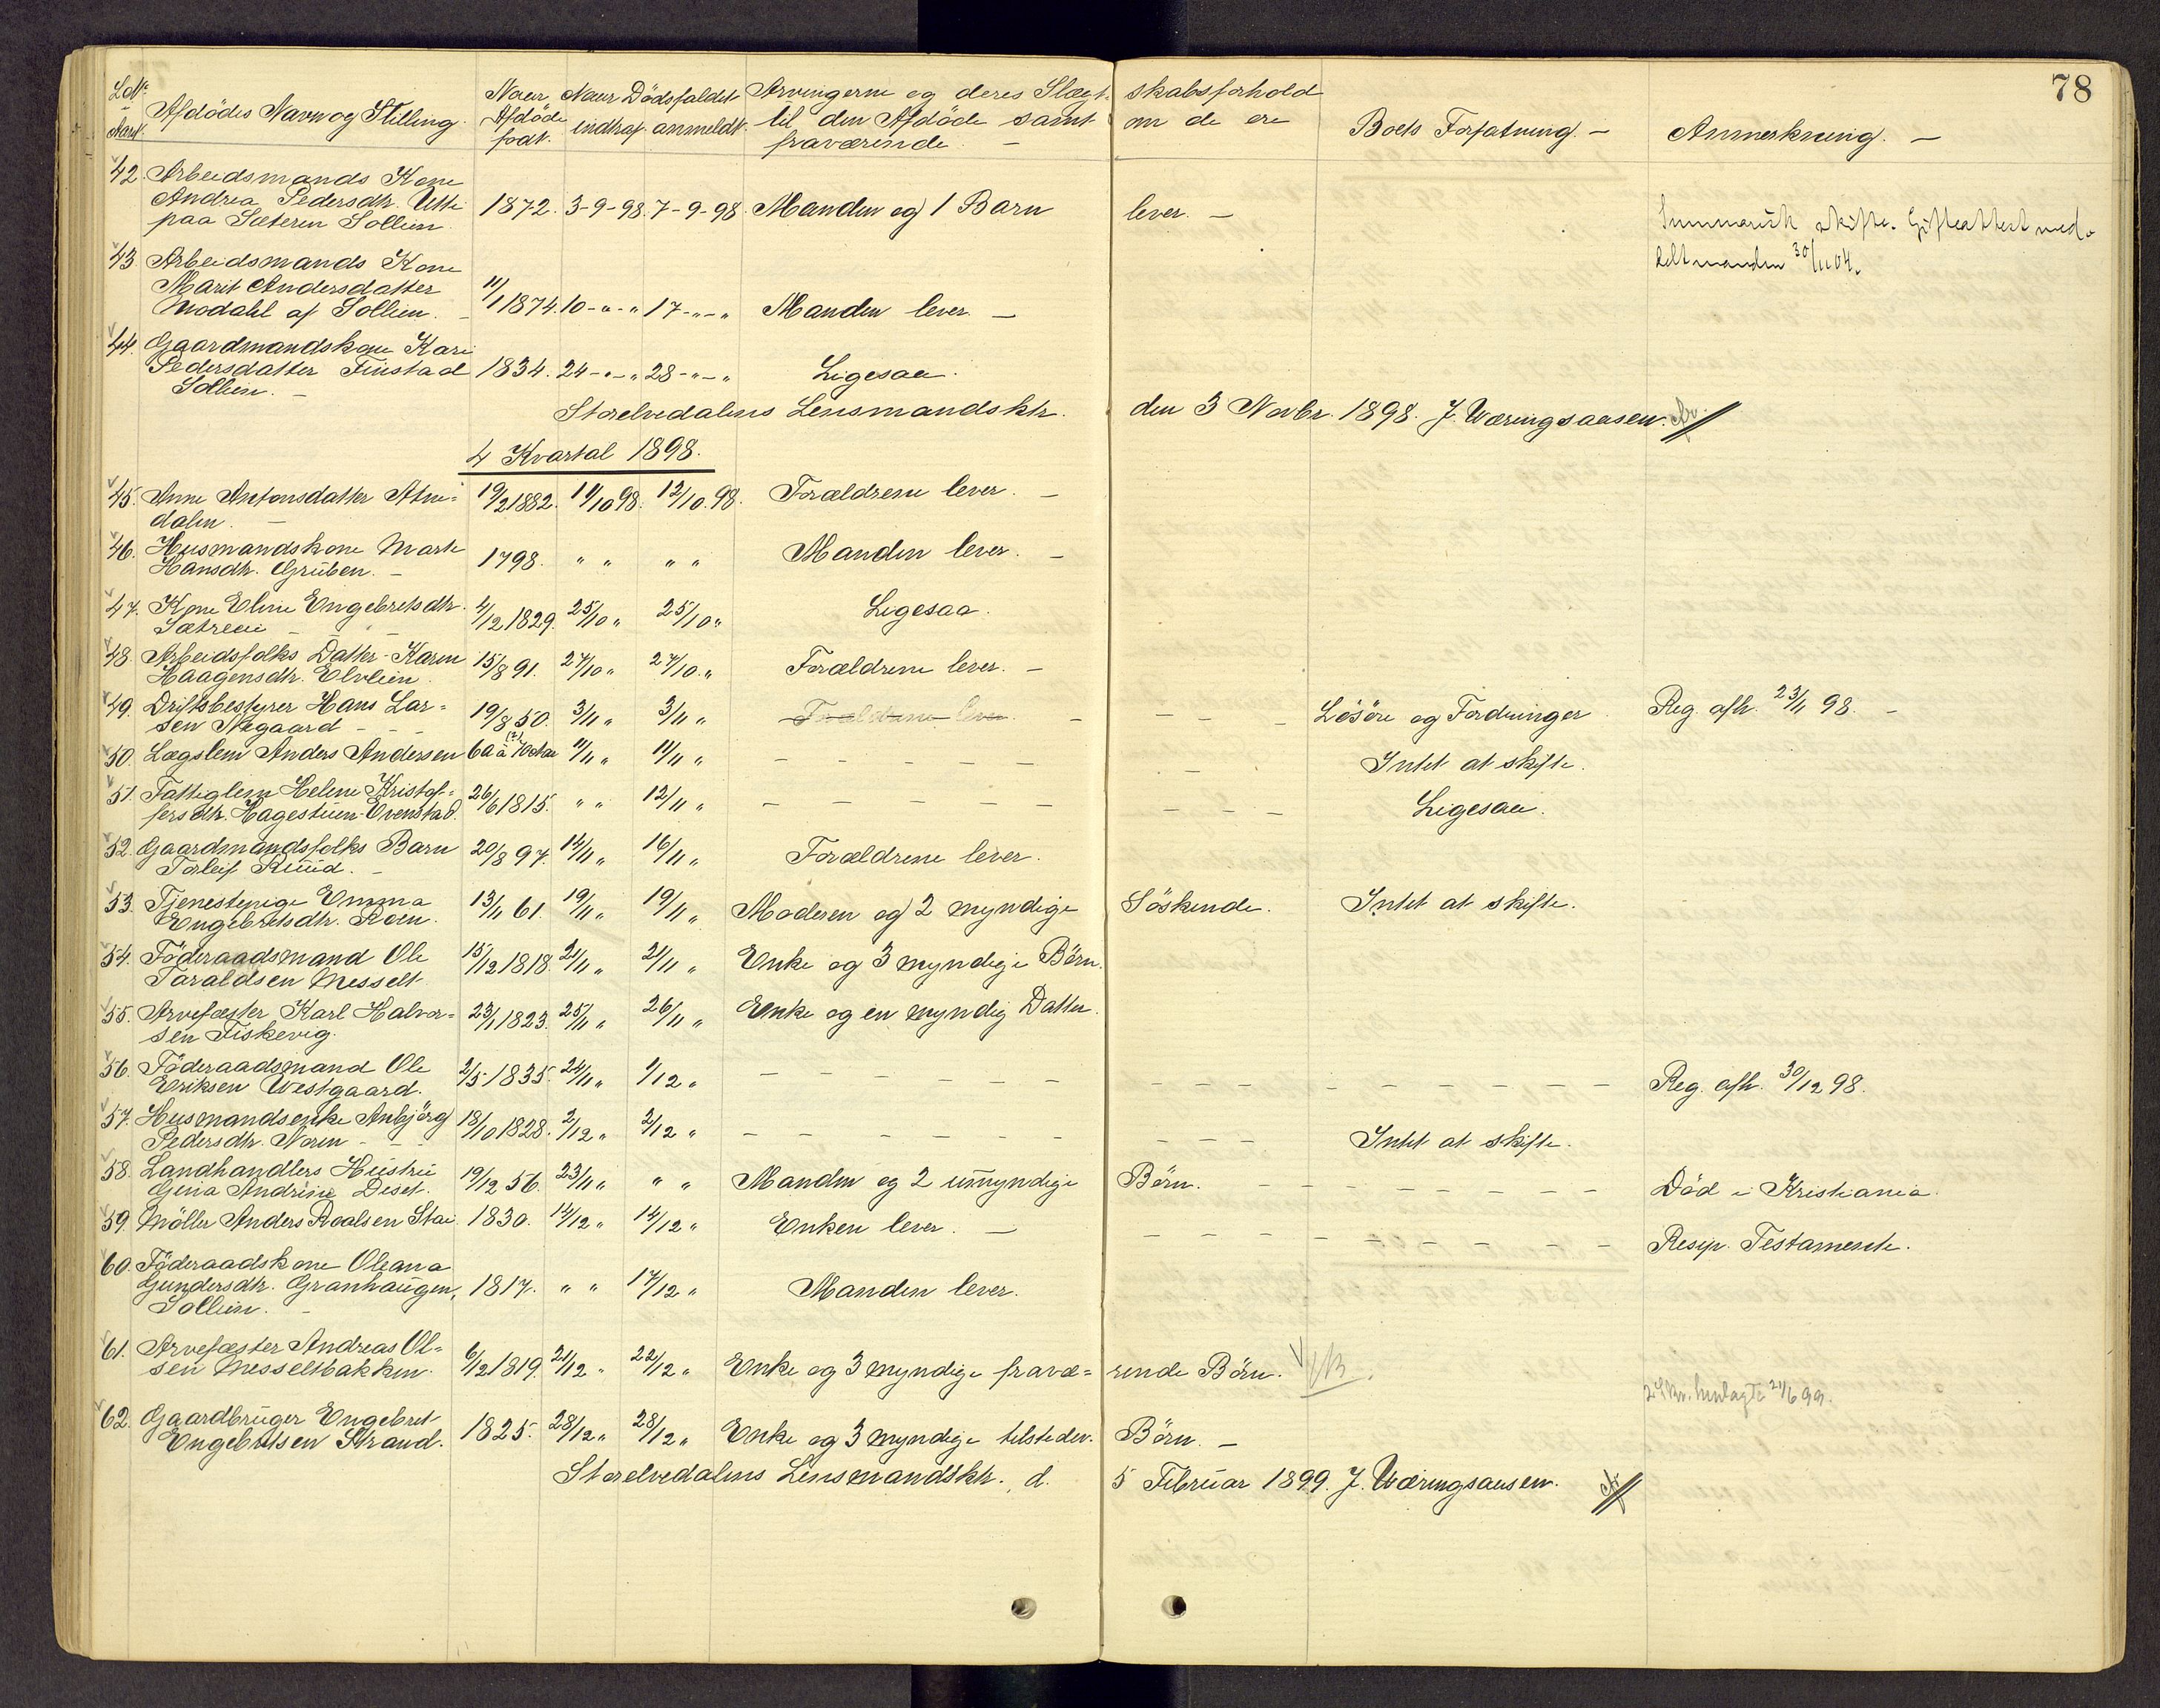 78
LoNr. Afdödes Navn og Stilling. Naar Afdöde födt. Naar Dödsfaldet indtraf. anmeldt. Arvingerne og deres Slægtskabsforhold til den Afdöde samt om de ere fraværende — Boets Forfatning. — Anmerkning. —
42. Arbeidsmands Kone
Andrea Pedersdtr. Utti 1872. 3-9-98. 7-9-98. Manden og 1 Barn lever. —
paa Sæteren Sollien.
Summarisk skifte. Gifteattest med-
delt manden 30/11 04.
43. Arbeidsmands Kone
Marit Andersdatter
Modahl af Sollien. 11/1 1874. 10-"-" 17-"-" Manden lever. —
44. Gaardmandskone Kari
Pedersdatter Finstad 1834. 24-"-" 28-"-" Ligesaa.
Sollien. —
Storelvedalens Lensmandsktr. den 3 Novbr. 1898. J. Wæringsaasen.
4 Kvartal 1898.
45. Anne Antonsdatter Atne- 19/2 1882. 11/10 98. 12/10. 98. Forældrene lever. —
dalen. —
46. Husmandskone Marte
Hansdtr. Gruben. — 1798. " " " " Manden lever. —
47. Kone Eline Engebretsdtr. 4/12 1829. 25/10 " 25/10 " Ligesaa.
Sætreeie —
48. Arbeidsfolks Datter Karen 15/8 91. 27/10 " 27/10. " Forældrene lever. —
Haagensdtr. Elvlien.
49. Driftsbestyrer Hans Lar- 19/8 50. 3/11 " 3/11 " Forældrene lever. — Lösöre og Fordringer Reg. afh. 23/11 98. —
sen Negaard — — —
50. Lægslem Anders Andersen 60 à 70 Aar (?) 11/11 " 11/11 " — — — Intet at skifte.
51. Fattiglem Helene Kristof-
fersdtr. Hagestuen-Evenstad. 26/6 1815. " " 12/11 " — — — Ligesaa.
52. Gaardmandsfolks Barn 20/8 97. 14/11 " 16/11 " Forældrene lever.
Torleif Ruud. —
53. Tjenestepige Emma 13/11 61. 19/11 " 19/11 " Moderen og 2 myndige Söskende. Intet at skifte.
Engebretsdtr. Koen.
54. Föderaadsmand Ole 15/12 1818. 21/11 " 21/11 " Enke og 3 myndige Börn.
Taraldsen Messelt
55. Arvefæster Karl Halvor- 23/11 1823. 25/11 " 26/11 " Enke og en myndig Datter.
sen Fiskevig.
56. Föderaadsmand Ole
Eriksen Westgaard. 2/5 1835. 24/11 " 1/12 " — — — Reg. afh. 30/12 98.
57. Husmandsenke Anbjörg 18/10 1828. 2/12 " 2/12 " — — — Intet at skifte.
Pedersdtr. Noren — —
58. Landhandlers Hustru
Gina Andrine Deset. 19/12 56. 23/11 " " " Manden og 2 umyndige Börn. — — — Död i Kristiania.
59. Möller Anders Roalsen Stai. 1830. 14/12 " 14/12 " Enken lever. — — — Resip. Testamente.
60. Föderaadskone Oleana
Gundersdtr. Granhaugen, 1817. " " 17/12 " Manden lever.
Sollien. —
61. Arvefæster Andreas Ol-
sen Messeltbakken. 6/12 1819. 21/12 " 22/12 " Enke og 3 myndige fravæ- rende Börn.
henlagte 21/6 99.
62. Gaardbruger Engebret
Engebretsen Strand. 1825. 28/12 " 28/12 " Enke og 3 myndige tilstedev. Börn. —
Storelvedalens Lensmandsktr., d. 5 Februar 1899. J. Wæringsaasen.